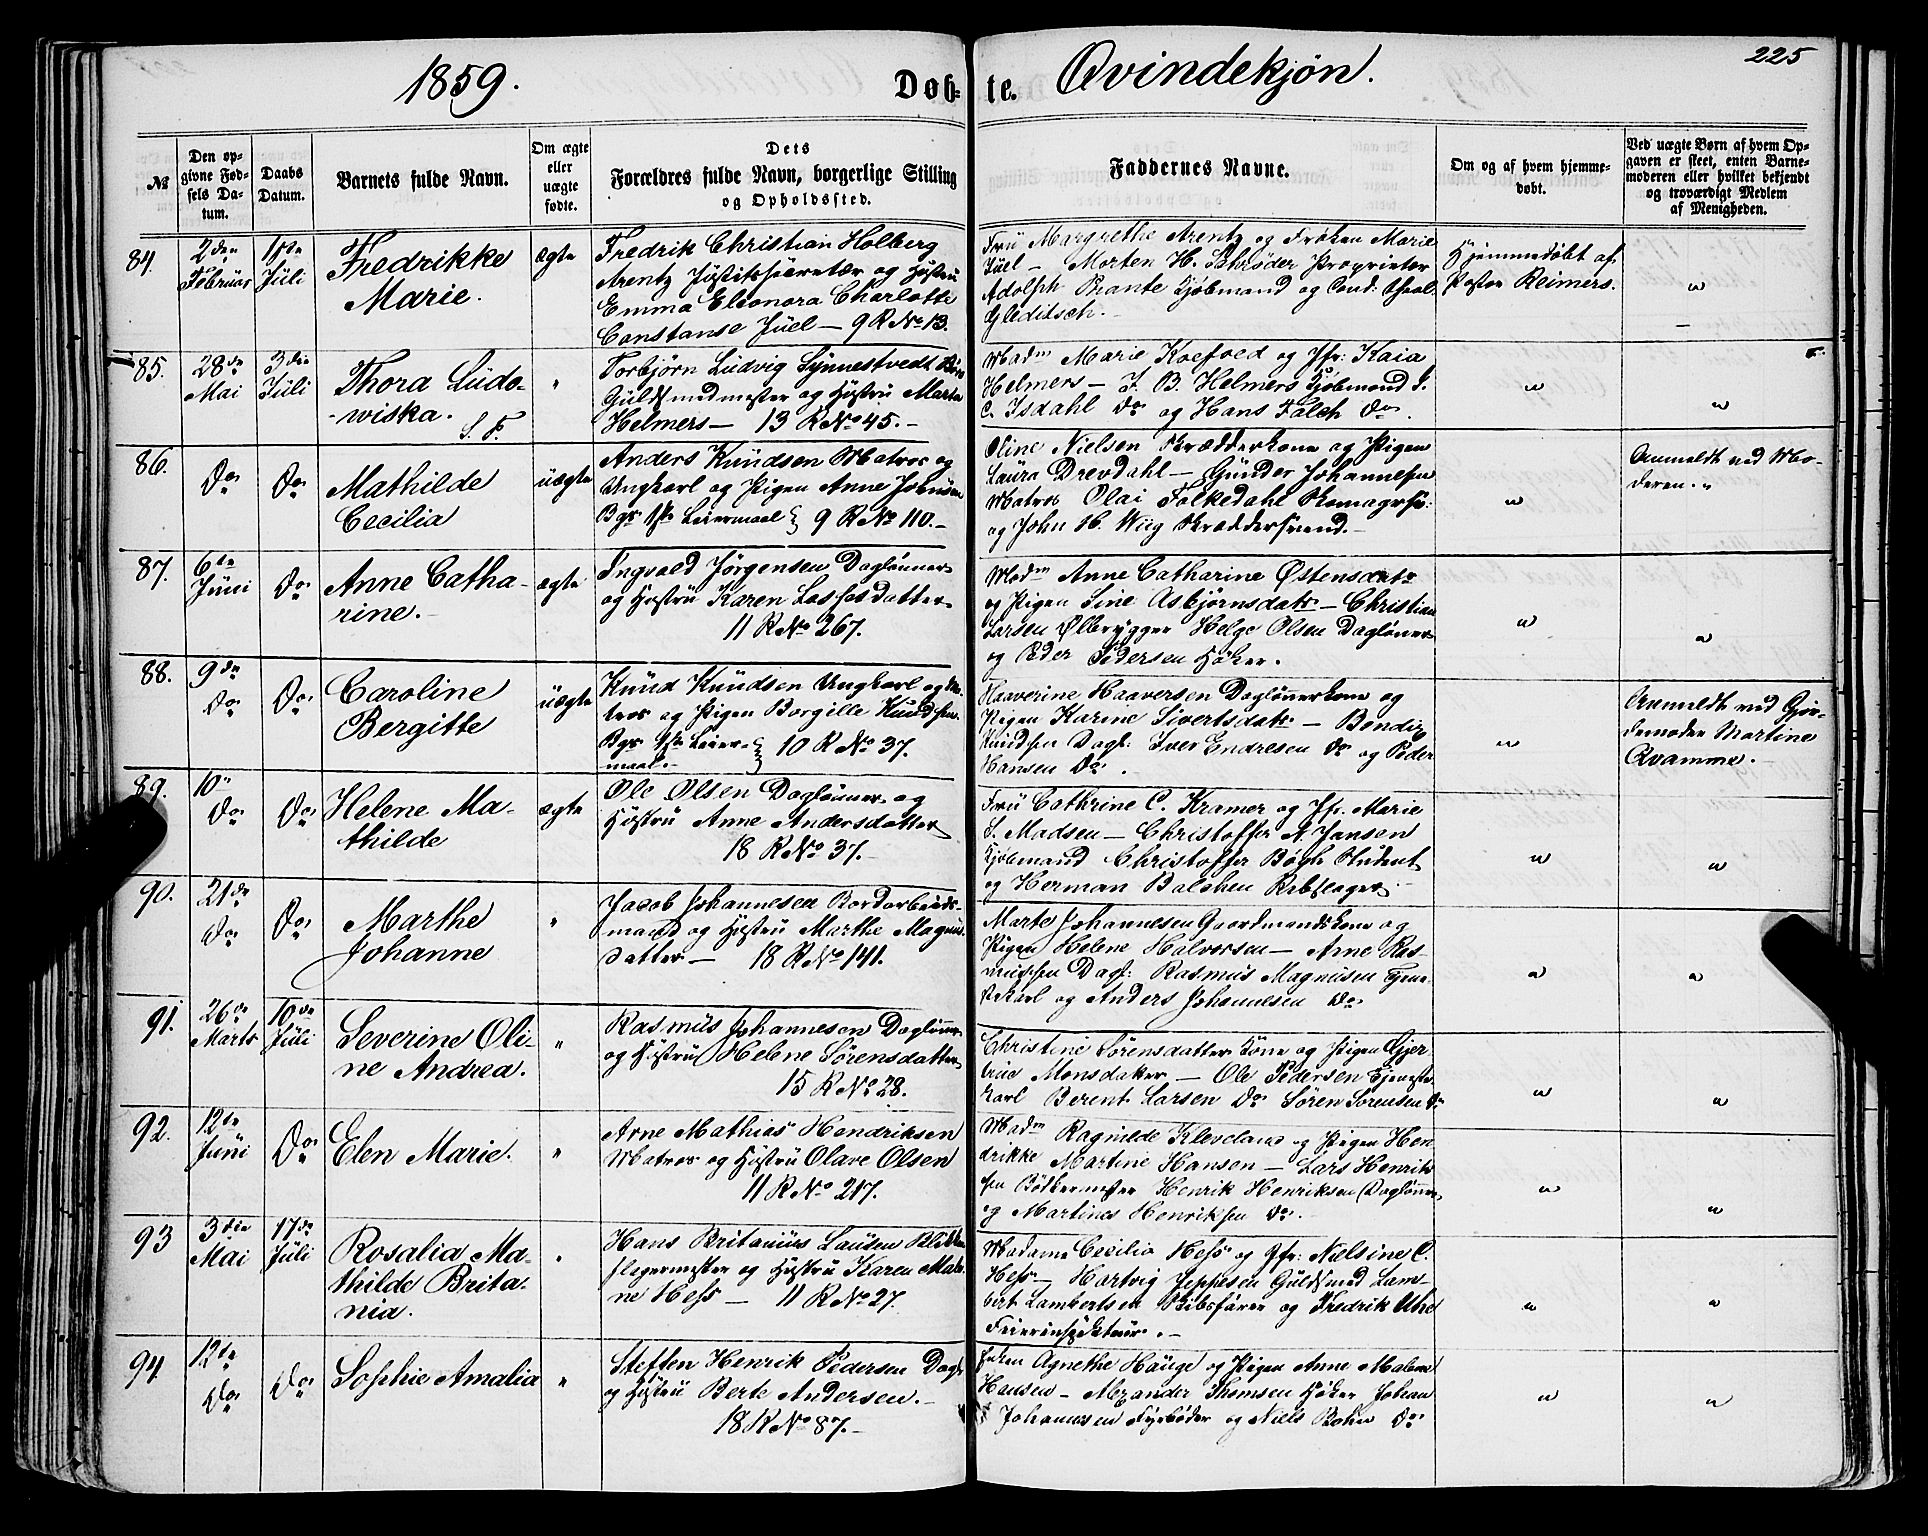 225
1859.
Døb- te. Qvindekjön.
№
Den op-
givne Fød-
sels Da-
tum.
Daabs
Datum.
Barnets fulde Navn.
Om ægte
eller
uægte
fødte.
Dets
Forældres fulde Navn, borgerlige Stilling
og Opholdssted.
Faddernes Navne.
Om og af hvem hjemme-
døbt.
Ved uægte Børn af hvem Op-
gaven er skeet, enten Barne-
moderen eller hvilket bekjendt
og troværdigt Medlem
af Menigheden.
84.
2den
Februar
1ste
Juli
Fredrikke
Marie.
ægte
Fredrik Christian Holberg
Arentz Justitssecretær og Hustru
Emma Eleonora Charlotte
Constanse Juel – 9 R No 13.
Fru Margrethe Arentz og Frøken Marie
Juel – Morten H. Schrøder Proprietær
Adolph Kjøbmand og Cand: theol:
Gleditsch.
Hjemmedøbt af
Pastor Reimers.
"
85.
28de
Mai
3die
Juli
Thora Ludo-
-wiska.
S. F.
"
Torbjørn Ludvig Synnestvedt
Guldsmedmester og Hustru Marta
Helmers – 13 R No 45. –
Madm Marie Koefoed og Jfr. Kaia
Helmers – J. B. Helmers Kjøbmand J.
C. Isdahl Do og Hans Falch Do.
"
"
86.
Do
Do
Mathilde
Cecilia
uægte
Anders Knudsen Matros og
Ungkarl og Pigen Anne Johnsen
Bgs 1ste Leiermaal } 9 R No 110. –
Oline Nielsen Skrædderkone og Pigen
Laura Drevdahl – Gunder Johannesen
Matros Olai Folkedahl Skomagersv:
og John H. Wiig Skræddersvend.
"
Anmeldt ved Mo-
deren. "
87.
6te
Juni
Do
Anne Catha-
rine.
ægte
Ingvald Jørgensen Daglønner
og Hustru Karen Lassesdatter.
11 R No 267.
Madm Anne Catharine Østensdatr
og Pigen Sine Asbjørnsdatr – Christian
Larsen Ølbrygger Helge Olsen Daglønner
og Peder Pedersen Høker.
"
"
88.
9de
Do
Do
Caroline
Bergitte
uægte
Knud Knudsen Ungkarl og Ma-
tros og Pigen Borgille Knudsen
Bgs 1ste Leier-
maal. } 10 R No 37.
Haaverine Haaversen Daglønnerkone og
Pigen Karine Sivertsdatr – Bendix
Knudsen Dagl: Iver Endresen Do og Peder
Hansen Do.
"
Anmeldt ved Gjor-
demoder Martine
Qvamme.
89.
10de
Do
Do
Helene Ma-
thilde
ægte
Ole Olsen Daglønner og
Hustru Anne Andersdatter
18 R No 37.
Fru Cathrine C. Kramer og Jfr. Marie
S. Madsen – Christoffer A Jansen
Kjøbmand Christoffer Bøgh Student
og Herman Balchen Rebslager
"
"
90.
21de
Do
Do
Marthe
Johanne
"
Jacob Johannesen Bordarbeids-
mand og Hustru Marthe Magnus-
datter – 18 R No 141.
Marte Johannesen Gaardmandskone og
Pigen Helene Halvorsen – Arne Ras-
mussen Dagl: Rasmus Magnusen Tjene-
stekarl og Anders Johannesen Do
"
"
91.
26de
Marts
10de
Juli
Severine Oli-
ne Andrea.
"
Rasmus Johannesen Daglønner
og Hustru Helene Sørensdatter
15 R No 28.
Christine Sørensdatter Kone og Pigen Gjer-
trud Monsdatter – Ole Pedersen Tjeneste-
karl Berent Larsen Do Søren Sørensen Do
"
"
92.
12te
Juni
Do
Elen Marie.
"
Arne Mathias Hendriksen
Matros og Hustru Olave Olsen
11 R No 217.
Madm Ragnilde Kleveland og Pigen Hen-
drikke Martine Hansen – Lars Henrik-
sen Bødkermester Henrik Henriksen Daglønner
og Martines Henriksen Do.
"
"
93
3die
Mai
17de
Juli
Rosalia Ma-
thilde Brita-
nia.
"
Hans Britanius Lausen Blikken-
slagermester og Hustru Karen Male-
ne Hess – 11 R No 27.
Madame Cecilia Hess og Jfr. Nielsine C.
Hess – Hartvig Jeppesen Guldsmed Lam-
bert Lambertsen Skibsfører og Fredrik Uhe
Feierinspekteur. –
"
"
94
12te
Do
Do
Sophie Amalia
"
Steffen Henrik Pedersen Dagl:
og Hustru Berte Andersen. –
18 R No 87. –
Enken Agnethe Hauge og Pigen Anne Malene
Hansen – Alexander Thomsen Høker Johan
Johannesen Fyrbøder og Niels Rohn Do
"
"